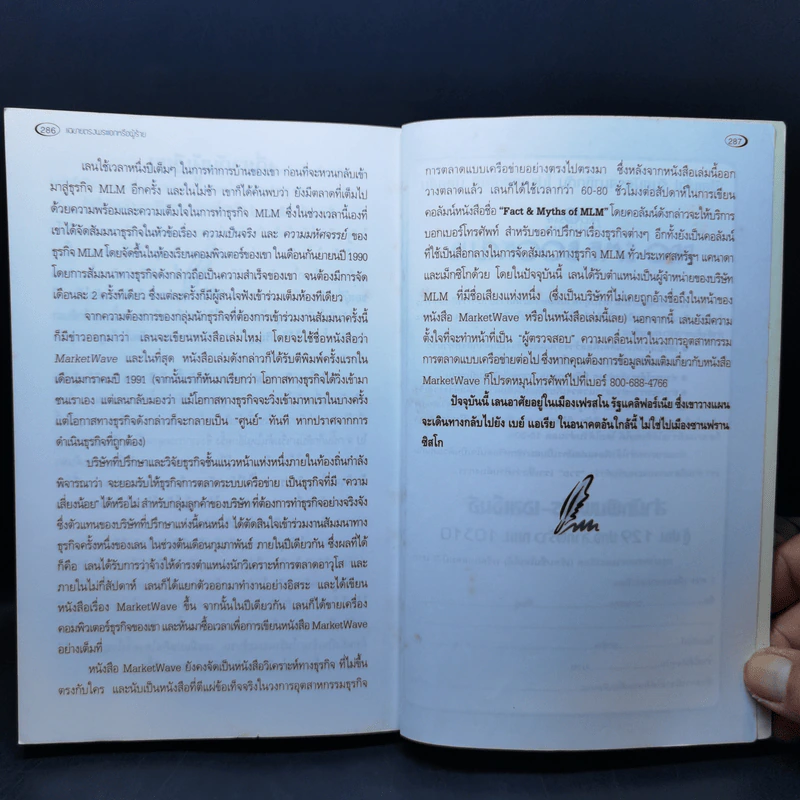 286 แฉขายตรงพระเอกหรือผู้ร้าย
เลนใช้เวลาหนึ่งปีเต็มๆ ในการทำการบ้านของเขา ก่อนที่จะหวนกลับเข้า
มาสู่ธุรกิจ MLM อีกครั้ง และในไม่ช้า เขาก็ได้ค้นพบว่า ยังมีตลาดที่เต็มไป
ด้วยความพร้อมและความเต็มใจในการทำธุรกิจ MLM ซึ่งในช่วงเวลานี้เองที่
เขาได้จัดสัมมนาในหัวข้อเรื่อง ความเป็นจริง และ ความมหัศจรรย์ ของ
ธุรกิจ MLM โดยจัดขึ้นในห้องเรียนคอมพิวเตอร์ของเขา ในเดือนกันยายนปี 1990
โดยการสัมมนาทางธุรกิจดังกล่าวถือเป็นความสำเร็จของเขา จนต้องมีการจัด
เดือนละ 2 ครั้งทีเดียว ซึ่งแต่ละครั้งก็มีผู้สนใจฟังเข้าร่วมเต็มห้องทีเดียว
จากความต้องการของกลุ่มนักธุรกิจที่ต้องการเข้าร่วมงานสัมมนาครั้งนี้
ก็มีข่าวออกมาว่า เลนจะเขียนหนังสือเล่มใหม่ โดยจะใช้ชื่อหนังสือว่า
MarketWave และในที่สุด หนังสือเล่มดังกล่าวก็ได้รับตีพิมพ์ครั้งแรกใน
เดือนมกราคมปี 1991 (จากนั้นเราก็หันมาเรียกว่า โอกาสทางธุรกิจได้วิ่งเข้ามา
ชนเราเอง แต่เลนกลับมองว่า แม้โอกาสทางธุรกิจจะวิ่งเข้ามาหาเราในบางครั้ง
แต่โอกาสทางธุรกิจดังกล่าวก็จะกลายเป็น "ศูนย์" ทันที หากปราศจากการ
ดำเนินธุรกิจที่ถูกต้อง)
บริษัทที่ปรึกษาและวิจัยธุรกิจชั้นแนวหน้าแห่งหนึ่งภายในท้องถิ่นกำลัง
พิจารณาว่า จะยอมรับให้ธุรกิจการตลาดระบบเครือข่าย เป็นธุรกิจที่มี "ความ
เสี่ยงน้อย" ได้หรือไม่ สำหรับกลุ่มลูกค้าของบริษัท ที่ต้องการทำธุรกิจอย่างจริงจัง
ซึ่งตัวแทนของบริษัทที่ปรึกษาแห่งนี้คนหนึ่ง ได้ตัดสินใจเข้าร่วมงานสัมมนาทาง
ธุรกิจครั้งหนึ่งของเลน ในช่วงต้นเดือนกุมภาพันธ์ ภายในปีเดียวกัน ซึ่งผลที่ได้
ก็คือ เลนได้รับการว่าจ้างให้ดำรงตำแหน่งนักวิเคราะห์การตลาดอาวุโส และ
ภายในไม่กี่สัปดาห์ เลนก็ได้แยกตัวออกมาทำงานอย่างอิสระ และได้เขียน
หนังสือเรื่อง MarketWave ขึ้น จากนั้นในปีเดียวกัน เลนก็ได้ขายเครื่อง
คอมพิวเตอร์ธุรกิจของเขา และหันมาซื้อเวลาเพื่อการเขียนหนังสือ MarketWave
อย่างเต็มที่
หนังสือ MarketWave ยังคงจัดเป็นหนังสือวิเคราะห์ทางธุรกิจ ที่ไม่ขึ้น
ตรงกับใคร และนับเป็นหนังสือที่ตีแผ่ข้อเท็จจริงในวงการอุตสาหกรรมธุรกิจ
287
การตลาดแบบเครือข่ายอย่างตรงไปตรงมา ซึ่งหลังจากหนังสือเล่มนี้ออก
วางตลาดแล้ว เลนก็ได้ใช้เวลากว่า 60-80 ชั่วโมงต่อสัปดาห์ในการเขียน
คอลัมน์หนังสือชื่อ "Fact & Myths of MLM" โดยคอลัมน์ดังกล่าวจะให้บริการ
บอกเบอร์โทรศัพท์ สำหรับขอคำปรึกษาเรื่องธุรกิจต่างๆ อีกทั้งยังเป็นคอลัมน์
ที่ใช้เป็นสื่อกลางในการจัดสัมมนาทางธุรกิจ MLM ทั่วประเทศสหรัฐฯ แคนาดา
และเม็กซิโกด้วย โดยในปัจจุบันนี้ เลนได้รับตำแหน่งเป็นผู้จำหน่ายของบริษัท
MLM ที่มีชื่อเสียงแห่งหนึ่ง (ซึ่งเป็นบริษัทที่ไม่เคยถูกอ้างชื่อถึงในหน้าของ
หนังสือ MarketWave หรือในหนังสือเล่มนี้เลย) นอกจากนี้ เลนยังมีความ
ตั้งใจที่จะทำหน้าที่เป็น "ผู้ตรวจสอบ" ความเคลื่อนไหวในวงการอุตสาหกรรม
การตลาดแบบเครือข่ายต่อไป ซึ่งหากคุณต้องการข้อมูลเพิ่มเติมเกี่ยวกับหนังสือ
MarketWave ก็โปรดหมุนโทรศัพท์ไปที่เบอร์ 800-688-4766
ปัจจุบันนี้ เลนอาศัยอยู่ในเมืองเฟรสโน รัฐแคลิฟอร์เนีย ซึ่งเขาวางแผน
จะเดินทางกลับไปยัง เบย์ แอเรีย ในอนาคตอันใกล้นี้ ไม่ใช่ไปเมืองซานฟราน
ซิสโก